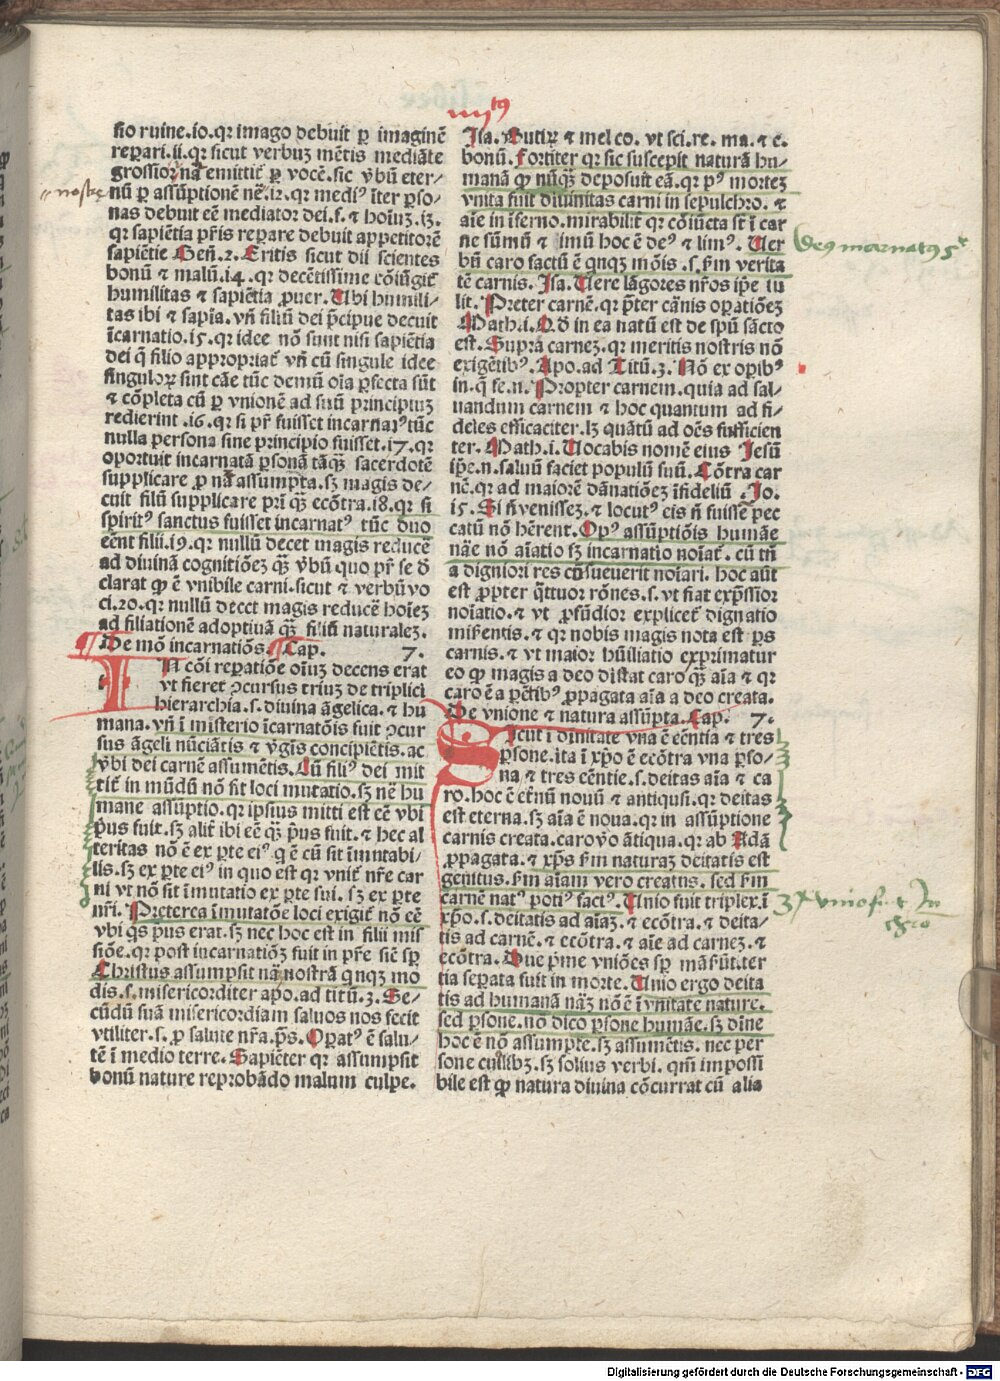 iiij^tus
sio ruine.io.qꝛ imago debuit ꝑ imaginē
repari.ii.qꝛ sicut verbuꝫ mētis mediāte
grossiori nā emittit̄ ꝑ vocē.sic v̄bū eter/
nostrę
nū ꝑ assūptionē nr̄e.i2.qꝛ mediꝰ īter ꝑso/
nas debuit eē mediator dei.s.⁊ hoīuꝫ.i3.
qꝛ sapiētia pr̄is repare debuit appetitorē
sapiētie Geñ.2.Eritis sicut dii scientes
bonū ⁊ malū.i4.qꝛ decētissime cōiūgit̄
humilitas ⁊ sapiētia ꝓuer.Ubi humili/
tas ibi ⁊ sapīa.vñ filiū dei p̄cipue decuit
īcarnatio.i5.qꝛ idee nō sunt nisi sapiētia
dei q̄ filio appropriat̄ vñ cū singule idee
singuloꝝ sint cāe tūc demū oīa ꝑfecta sūt
⁊ cōpleta cū ꝑ vnionē ad suū principiuꝫ
redierint.i6.qꝛ si pr̄ fuisset incarnatꝰ tūc
nulla persona sine principio fuisset.i7.qꝛ
oportuit incarnatā ꝑsonā tāqꝫ̄ sacerdotē
supplicare ꝓ nā assumpta.sꝫ magis de/
cuit filiū supplicare pr̄i qꝫ̄ ecōtra.i8.qꝛ si
spiritꝰ sanctus fuisset incarnatꝰ tūc duo
eēnt filii.i9.qꝛ nullū decet magis reducē
ad diuinā cognitiōeꝫ qꝫ̄ v̄bū quo pr̄ se d̄
clarat ꝙ ē vnibile carni.sicut ⁊ verbū vo
ci.20.qꝛ nullū decet magis reducē hoīeꝫ
ad filiationē adoptiuā qꝫ̄ filiū naturaleꝫ.
De mō incarnatiōis. Cap. 7.
IN cōi reꝑatiōe oīuꝫ decens erat
vt fieret ꝯcursus triuꝫ de triplici
hierarchia.s.diuina āgelica.⁊ hu
mana.vñ ī misterio īcarnatōis fuit ꝯcur
sus āgeli nūciātis ⁊ v̄gis concipiētis.ac
v̄bi dei carnē assumētis.Cū filiꝰ dei mit
tit̄ in mūdū nō fit loci mutatio.sꝫ nē hu
mane assūptio.qꝛ ipsius mitti est eē vbi
p̄us fuit.sꝫ alit̄ ibi eē qꝫ̄ p̄us fuit.⁊ hec al
teritas nō ē ex ꝑte eiꝰ q̄ ē cū sit īmutabi/
lis.sꝫ ex ꝑte eiꝰ in quo est qꝛ vnit̄ nr̄e car
ni vt nō sit īmutatio ex ꝑte sui.sꝫ ex ꝑte
nr̄i.Preterea īmutatōe loci exigit̄ nō eē
vbi q̄s p̄us erat.sꝫ nec hoc est in filii mis
siōe.qꝛ post incarnatiōꝫ fuit in pr̄e sic̄ sꝑ
Christus assumpsit nā nostrā qnqꝫ mo
dis.s.misericorditer apo.ad titū.3.Se/
cūdū suā misericordiam saluos nos fecit
vtiliter.s.ꝓ salute nr̄a.p̄s.Opatꝰ ē salu/
tē ī medio terre.Sapiēter qꝛ assumpsit
bonū nature reprobādo malum culpe.
Isa.Butiꝝ ⁊ mel co.vt sci.re.ma.⁊ e.
bonū.Fortiter qꝛ sic suscepit naturā hu/
manā ꝙ nūqꝫ̄ deposuit eā.qꝛ pꝰ morteꝫ
vnita fuit diuinitas carni in sepulchro.⁊
aīe in īferno.mirabilit̄ qꝛ cōiūcta sūt ī car
ne sūmū ⁊ īmū hoc ē deꝰ ⁊ limꝰ. Uer
deꝰ incarnatꝰ 5^r
bū caro factū ē qnqꝫ mōis.s.ẜm verita
tē carnis.Isa.Uere lāgores nr̄os ip̄e tu
lit.Preter carnē.qꝛ p̄ter cānis oꝑatiōeꝫ
Math.i.Qd̄ in ea natū est de spū sācto
est.Supra carneꝫ.qꝛ meritis nostris nō
exigētibꝰ.Apo.ad Titū.3.Nō ex oꝑibꝰ
in.q̄ fe.n.Propter carnem.quia ad sal/
uandum carnem ⁊ hoc quantum ad fi/
deles efficaciter.lꝫ quātū ad oēs sufficien
ter.Math.i.Uocabis nomē eius Jesū
ip̄e.n.saluū faciet populū suū.Cōtra car
nē.qꝛ ad maiorē dānatiōeꝫ īfideliū.Jo.
i5.Si ñ venisseꝫ.⁊ locutꝰ eis ñ fuisse pec
catū nō hērent.Opꝰ assūptiōis humāe
nāe nō aīatio sꝫ incarnatio noīat̄.cū tñ
a digniori res cōsueuerit noīari.hoc aūt
est ꝓpter q̄ttuor rōnes.s.vt fiat exp̄ssior
noīatio.⁊ vt ꝓfūdior explicet̄ dignatio
miserētis.⁊ qꝛ nobis magis nota est ꝑs
carnis.⁊ vt maior hūiliatio exprimatur
eo ꝙ magis a deo distat caro qꝫ̄ aīa ⁊ qꝛ
caro ē a ꝑētibꝰ ꝓpagata aīa a deo creata.
De vnione ⁊ natura assūpta.Cap. 7.
Sicut ī diuitate vna ē eēntia ⁊ tres
ꝑsone.ita ī xp̄o ē ecōtra vna ꝑso/
na ⁊ tres eēntie.s.deitas aīa ⁊ ca
ro.hoc ē et̄nū nouū ⁊ antiquū.qꝛ deitas
est eterna.sꝫ aīa ē noua.qꝛ in assūptione
carnis creata.caro v̄o ātiqua.qꝛ ab Adā
ꝓpagata.⁊ xp̄s ẜm naturaꝫ deitatis est
genitus.ẜm aīam vero creatus.sed ẜm
carnē natꝰ potiꝰ factꝰ.Unio fuit triplex.ī
3^x vnio fuit In
christo
xp̄o.s.deitatis ad aīaꝫ.⁊ ecōtra.⁊ deita/
tis ad carnē.⁊ ecōtra.⁊ aīe ad carneꝫ.⁊
ecōtra.Due p̄me vniōes sꝑ māsūt.ter
tia seꝑata fuit in morte.Unio ergo deita
tis ad humanā nāꝫ nō ē ī vnitate nature.
sed ꝑsone.nō dico ꝑsone humāe.sꝫ dīne
hoc ē nō assumpte.sꝫ assumētis.nec per
sone cuilibꝫ.sꝫ solius verbi.qm̄ impossi
bile est ꝙ natura diuina cōcurrat cū alia
Digitalisierung gefördert durch die Deutsche Forschungsgemeinschaft - DFG